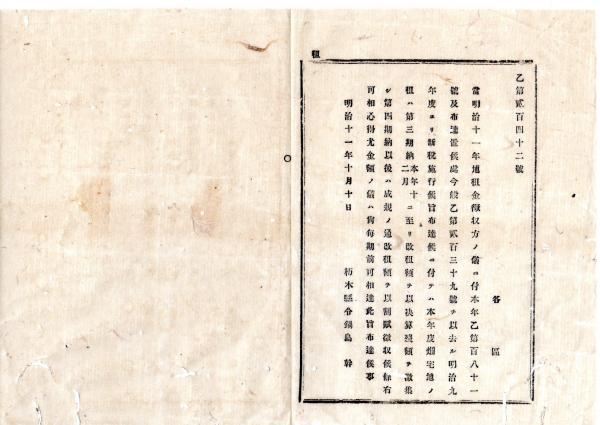 租
乙第貳百四十二號
各區
當明治十一年地租金徵収方ノ儀ニ付本年乙第百八十一
號及布達置候處今般乙第貳百三十九號ヲ以去ル明治九
年度ヨリ新税施行候旨布達候ニ付テハ本年度畑宅地ノ
租ハ第三期納本年十二月ニ至リ改租額ヲ以決算殘額ヲ徵集
シ第四期納以後ハ成規ノ通改租額ヲ以割賦徵収候條右
可相心得尤金額ノ儀ハ尚每期前可相達此旨布達候事
明治十一年十月十日
栃木縣令鍋島幹